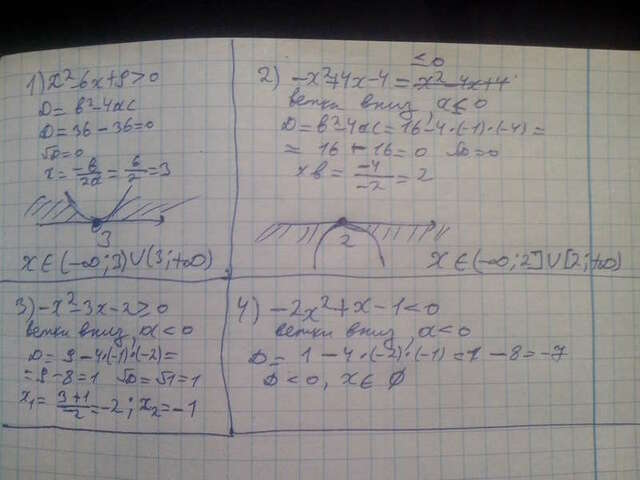 1) x²-6x+9>0
D=b²-4ac
D=36-36=0
√D=0
x=-b/2a=6/2=3
3
x∈(-∞;3)∪(3;+∞)
≤0
2) -x²+4x-4=x²-4x+4
ветки вниз, a≤0
D=b²-4ac=16-4·(-1)·(-4)=
=16-16=0 √D=0
xв=-4/-2=2
2
x∈(-∞;2]∪[2;+∞)
3) -x²-3x-2≥0
ветки вниз, a<0
D=9-4·(-1)·(-2)=
=9-8=1 √D=√1=1
x₁=3+1/-2=-2; x₂=-1
4) -2x²+x-1<0
ветки вниз, a<0
D=1-4·(-2)·(-1)=1-8=-7
D<0, x∈∅